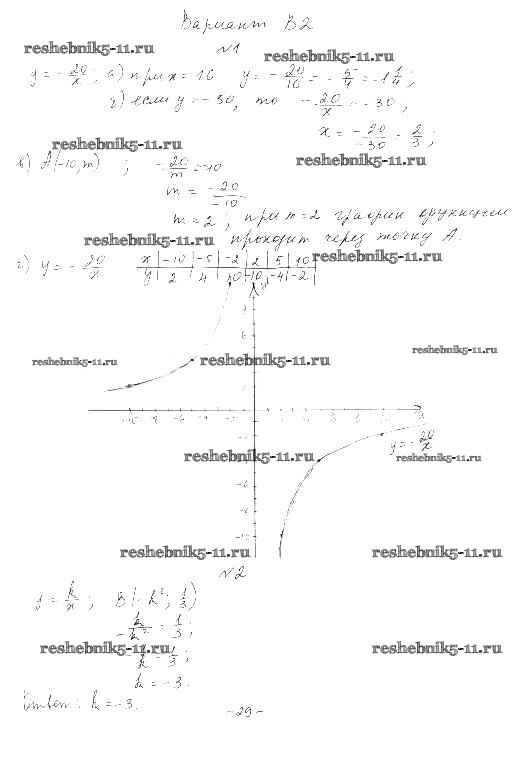 Вариант В2
reshebnik5-11.ru
№1
reshebnik5-11.ru
y = -20/x, а) при x = 16 y = -20/16 = -5/4 = -1 1/4;
если y = -30, то -20/x = -30,
reshebnik5-11.ru
x = -20/-30 = 2/3;
reshebnik5-11.ru
в) A(-10; m) ; -20/m = -10
m = -20/-10
m = 2; при m = 2 график функции
reshebnik5-11.ru
проходит через точку А.
г) y = -20/x
x | -10 | -5 | -2 | 2 | 5 | 10
reshebnik5-11.ru
y | 2 | 4 | 10 | -10 | -4 | -2
reshebnik5-11.ru
reshebnik5-11.ru
reshebnik5-11.ru
y = -20/x
reshebnik5-11.ru
reshebnik5-11.ru
reshebnik5-11.ru
reshebnik5-11.ru
№2
y = k/x; B(-k²; 1/3)
k/-k² = 1/3;
reshebnik5-11.ru
reshebnik5-11.ru
k = -3.
Ответ: k = -3.
-29-